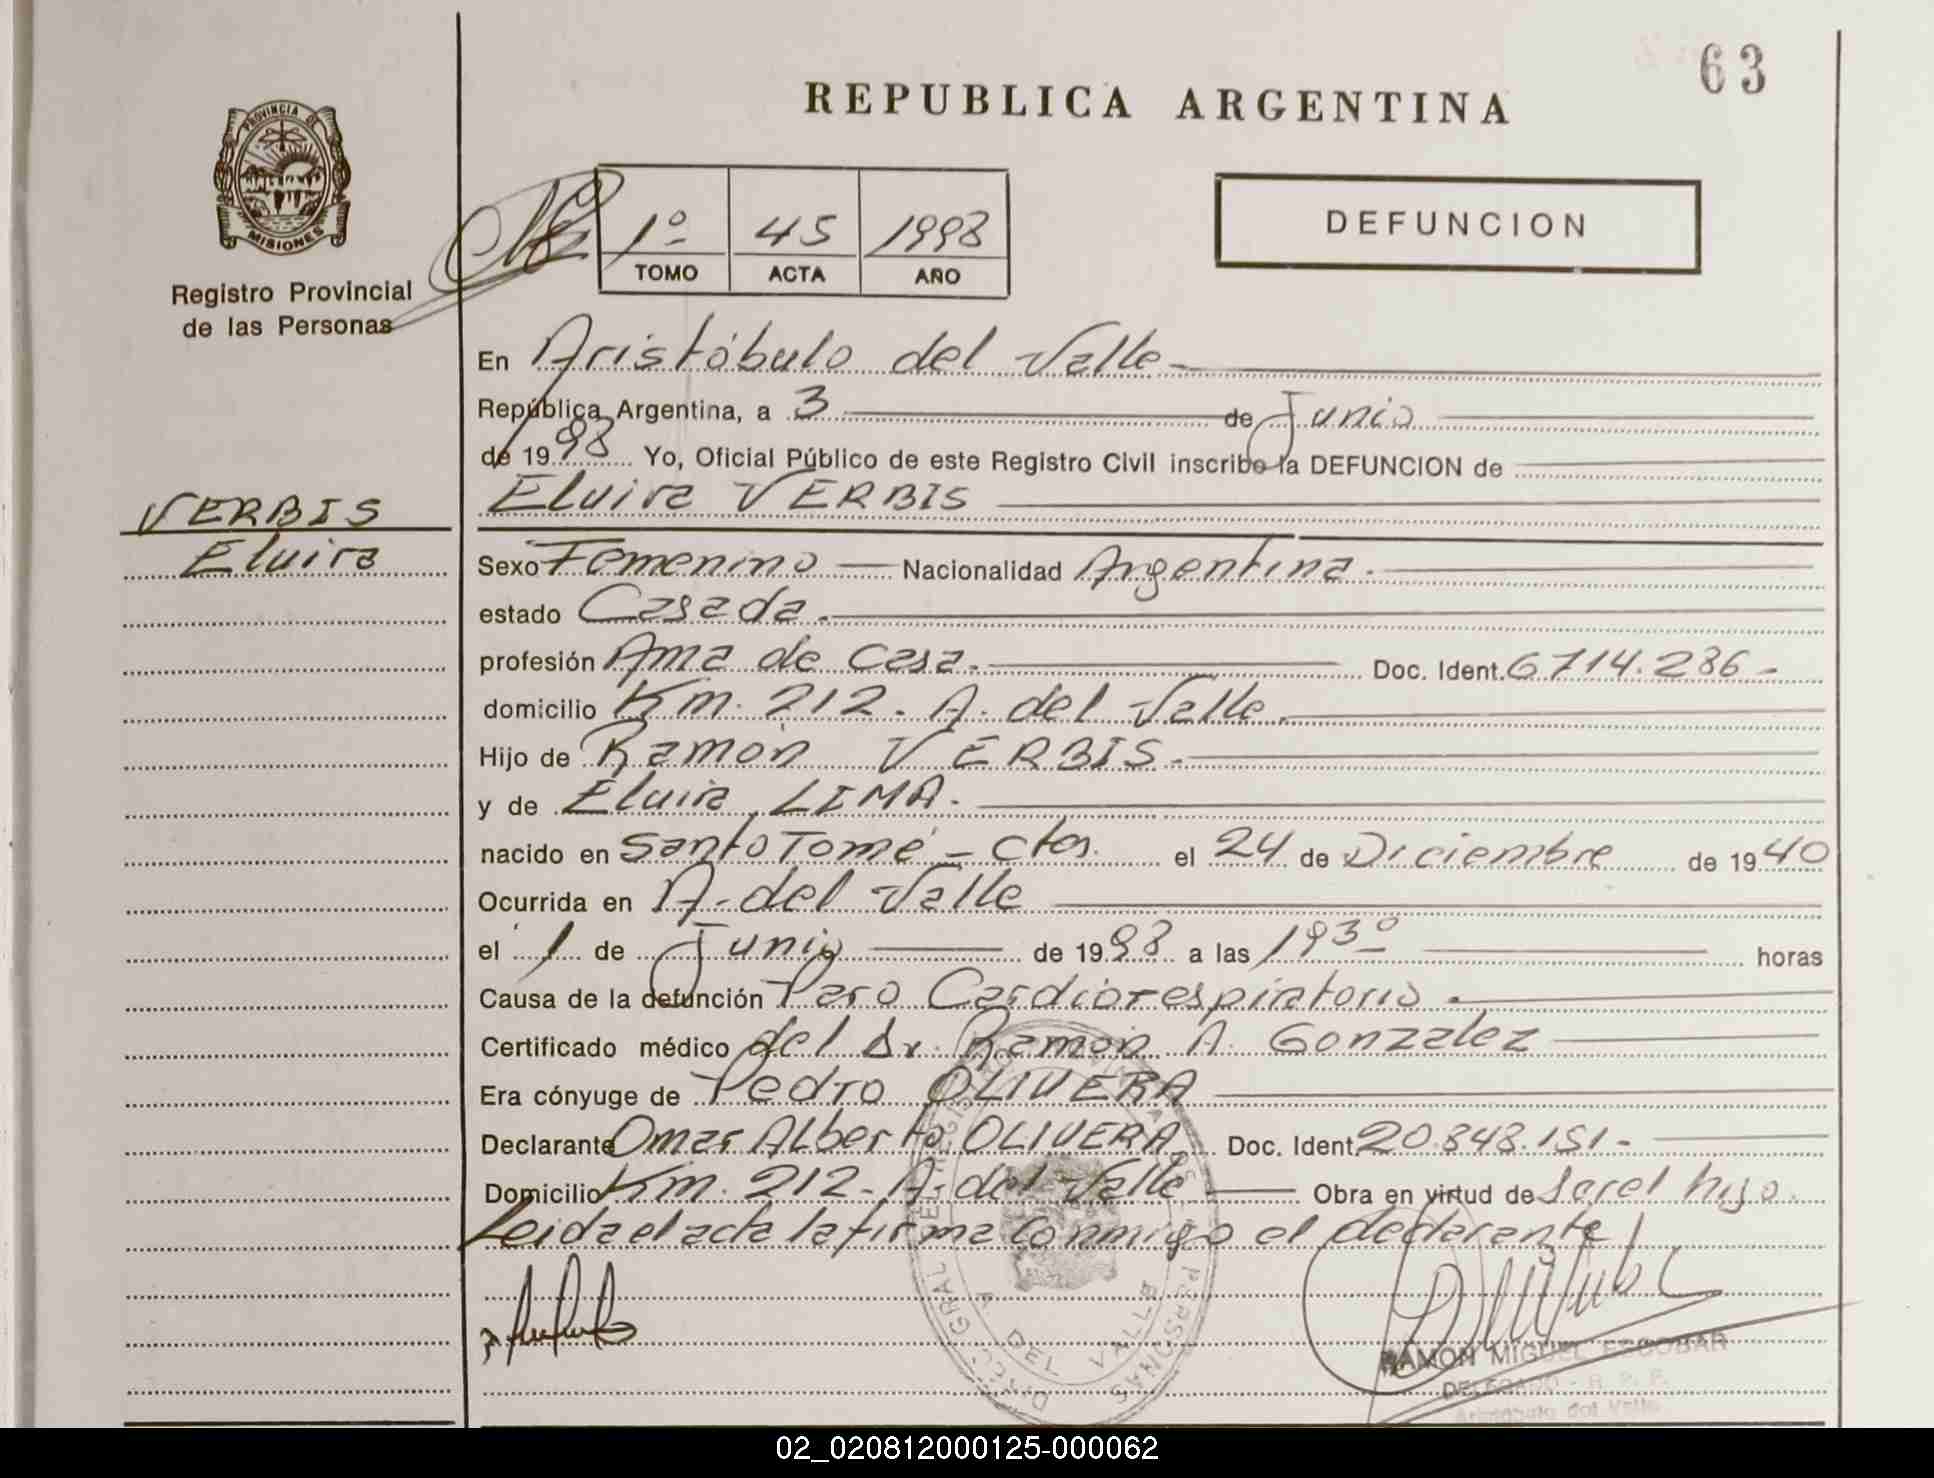 63
REPUBLICA ARGENTINA
PROVINCIA DE
MISIONES
Registro Provincial
de las Personas
1º 45 1998
TOMO ACTA AÑO
DEFUNCION
En Aristóbulo del Valle
República Argentina, a 3 de Junio
de 1998 Yo, Oficial Público de este Registro Civil inscribo la DEFUNCION de
Elvira VERBIS
VERBIS
Elvira
Sexo Femenino Nacionalidad Argentina.
estado Casada.
profesión Ama de Casa. Doc. Ident. 6714.286-
domicilio Km. 212. A. del Valle.
Hijo de Ramón VERBIS.
y de Elvira LIMA.
nacido en Santo Tomé - Ctes. el 24 de Diciembre de 1940
Ocurrida en A. del Valle
el 1 de Junio de 1998 a las 1930 horas
Causa de la defunción Paro Cardiorespiratorio.
Certificado médico del Dr. Ramón A. Gonzalez
Era cónyuge de Pedro OLIVERA
Declarante Omar Alberto OLIVERA Doc. Ident. 20.848.151-
Domicilio Km. 212- A. del Valle Obra en virtud de ser el hijo.
Leida el acta la firma conmigo el declarante
A DEL VALLE
RAMON MIGUEL ESCOBAR
DELEGADO - R. P. P.
Aristóbulo del Valle
02_020812000125-000062